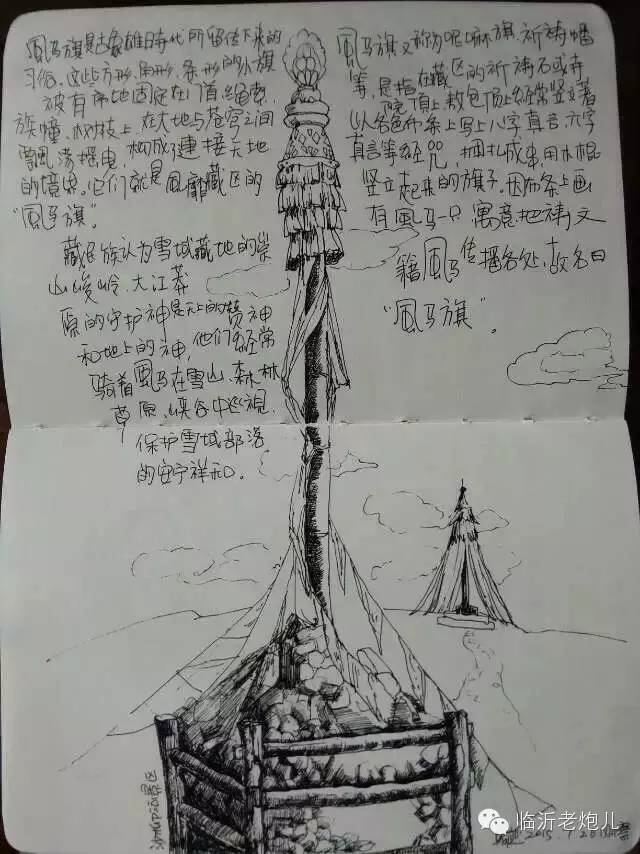 風马旗是古象雄时代所留传下来的
习俗,这些方形、角形、条形的小旗
被有序地固定在门首、绳索、
族幢、树枝上,在大地与苍穹之间
飘荡摇曳,构成了連接天地
的境界。它们就是風靡藏区的
“風马旗”。
藏民族认为雪域藏地的崇
山峻岭、大江莽
原的守护神是天上的赞神
和地上的神,他们经常
骑着風马在雪山、森林
草原、峡谷中巡視,
保护雪域部落
的安宁祥和。
風马旗又称为呢嘛旗、祈祷幡
等,是指在藏区的祈祷石或寺
院頂上、敖包顶上经常竖立着
以各色布条上写上八字真言、六字
真言等经咒,捆扎成串,用木棍
竖立起来的旗子。因布条上画
有風马一只,寓意把祷文
籍風马传播各处,故名曰
“風马旗”。
临沂老炮儿
2015.